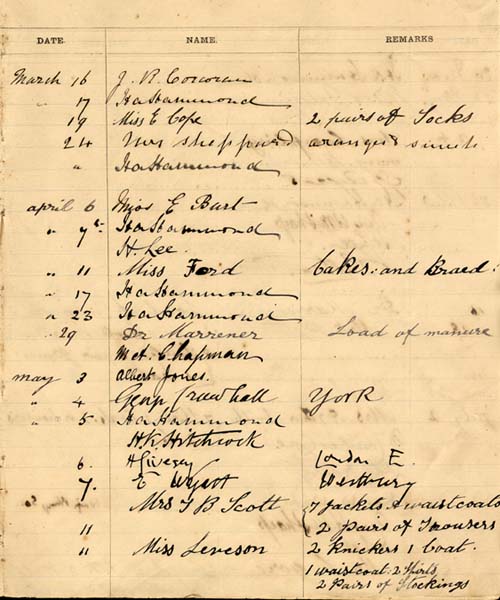 DATE. NAME. REMARKS
March 16 J. R. Corcoran
" 17 Ha Hammond
19 Miss E Cope 2 pairs of Socks
24 Mrs sheppard oranges &
" Ha Hammond
april 6 Miss E Burt
" 7th Ha Hammond
H. Lee.
" 11 Miss Ford Cakes: and Braed:
" 17 Ha Hammond
" 23 Ha Hammond
" 29 Dr Marrener Load of manure
Chapman
may 3 Albert Jones.
" 4 Crawhall York
" 5 Ha Hammond
H.K. Hitchcock
6. H Livesey London E.
7. E Wyatt Westbury
Mrs T B Scott 7 Jackets 4 waistcoats
11 2 Pairs of Trousers
" Miss Leveson 2 Knickers 1 Coat.
1 waistcoat. 2 Shirts
2 Pairs of Stockings